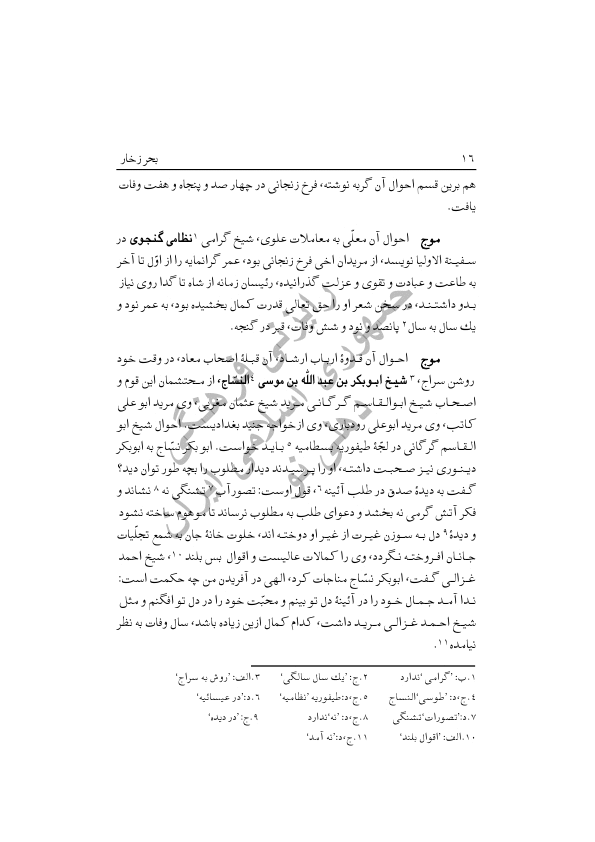 ١٦ بحر زخار
هم برین قسم احوال آن گربه نوشته، فرخ زنجانی در چهار صد و پنجاه و هفت وفات
یافت.
موج احوال آن معلّی به معاملات علوی، شیخ گرامی ١ نظامی گنجوی در
سفینة الاولیا نویسد، از مریدان اخی فرخ زنجانی بود، عمر گرانمایه را از اوّل تا آخر
به طاعت و عبادت و تقوی و عزلت گذرانیده، رئیسان زمانه از شاه تا گدا روی نیاز
بدو داشتند، در سخن شعر او را حق تعالی قدرت کمال بخشیده بود، به عمر نود و
یك سال به سال ٢ پانصد و نود و شش وفات، قبر در گنجه.
موج احوال آن قدوۀ ارباب ارشاد، آن قبلۀ اصحاب معاد، در وقت خود
روشن سراج، ٣ شیخ ابوبکر بن عبد الله بن موسی ٤ النسّاج، از محتشمان این قوم و
اصحاب شیخ ابوالقاسم گرگانی مرید شیخ عثمان مغربی، وی مرید ابو علی
کاتب، وی مرید ابوعلی رودباری، وی از خواجه جنید بغدادیست. احوال شیخ ابو
القاسم گرگانی در لجّۀ طیفوریه بسطامیه ٥ باید خواست. ابو بکر نسّاج به ابوبکر
دینوری نیز صحبت داشته، او را پرسیدند دیدار مطلوب را بچه طور توان دید؟
گفت به دیدۀ صدق در طلب آئینه ٦، قول اوست: تصور آب ٧ تشنگی نه ٨ نشاند و
فکر آتش گرمی نه بخشد و دعوای طلب به مطلوب نرساند تا موهوم ساخته نشود
و دیدۀ ٩ دل به سوزن غیرت از غیر او دوخته اند، خلوت خانۀ جان به شمع تجلّیات
جانان افروخته نگردد، وی را کمالات عالیست و اقوال بس بلند ١٠، شیخ احمد
غزالی گفت، ابوبکر نسّاج مناجات کرد، الهی در آفریدن من چه حکمت است:
ندا آمد جمال خود را در آئینۀ دل تو بینم و محبّت خود را در دل تو افگنم و مثل
شیخ احمد غزالی مرید داشت، کدام کمال ازین زیاده باشد، سال وفات به نظر
نیامده ١١.
١.ب: ’گرامی‘ ندارد ٢.ج: ’یك سال سالگی‘ ٣.الف: ’روش به سراج‘
٤.ج،د: ’طوسی‘ النساج ٥.ج،د: طیفوریه ’نظامیه‘ ٦.د: ’در عیسائیه‘
٧.د: ’تصورات‘ تشنگی ٨.ج،د: ’نه‘ ندارد ٩.ج: ’در دیده‘
١٠.الف: ’اقوال بلند‘ ١١.ج،د: ’نه آمد‘
رایزنی فرهنگی
جمهوری اسلامی ایران
دهلی نو